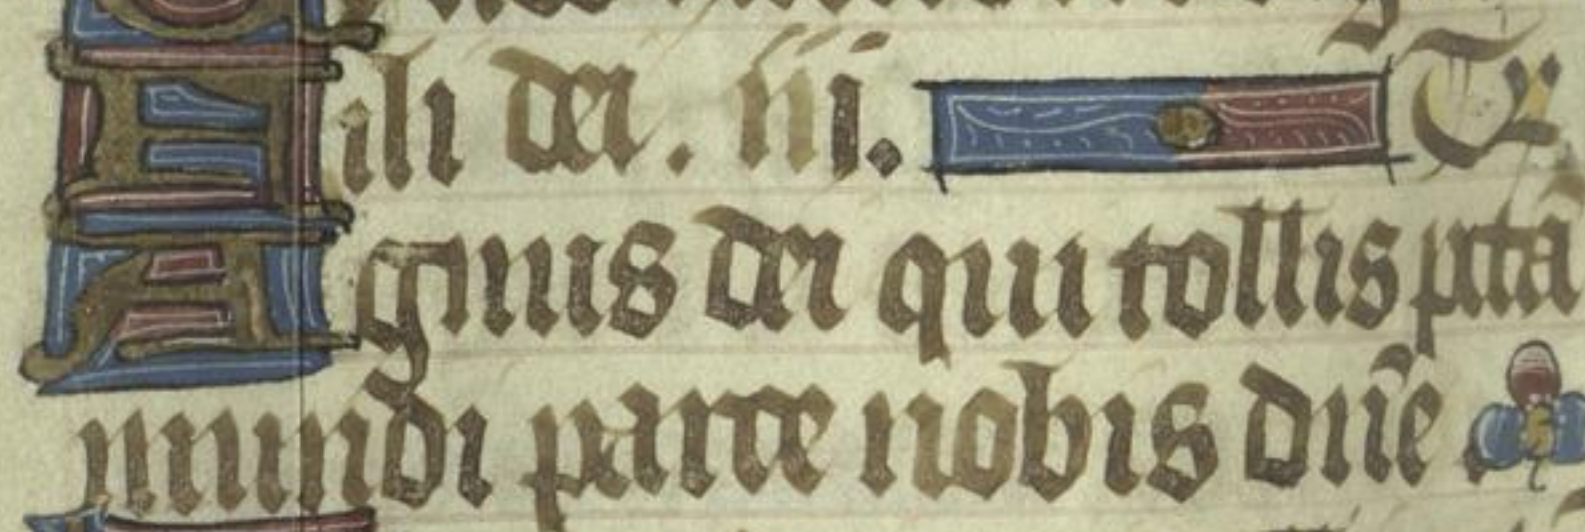 Fili dei . iii. Te
Agnus dei qui tollis pctā
mundi parce nobis dn̄e